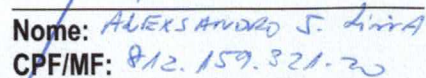 Nome: ALEXSANDRO S. LIMA
CPF/MF: 812.159.321-20